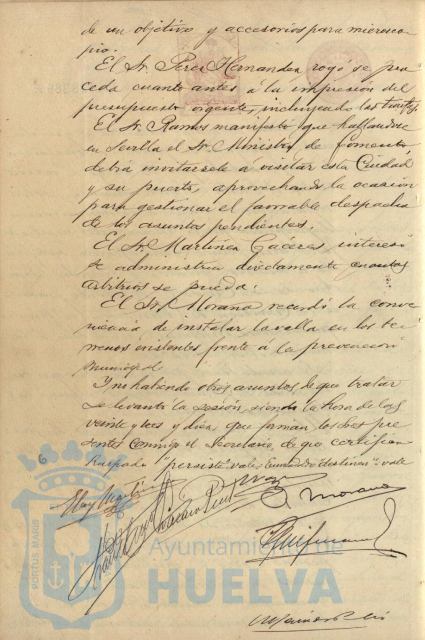 de un objetivo y accesorios para microsco
pio.
El Sr. Perez Hernandez rogó se pro
ceda cuanto antes á la impresion del
presupuesto vigente, incluyendo las tarifas.
El Sr. Ramos manifestó que hallandose
en Sevilla el Sr. Ministro de fomento,
debia invitarsele á visitar esta Ciudad
y su puerto, aprovechando la ocasion
para gestionar el favorable despacho
de los asuntos pendientes.
El Sr. Martinez Caceres interesó
se administren directamente cuantos
arbitrios se pueda.
El Sr. Morano recordó la conve
niencia de instalar la valla en los ter
renos existentes frente á la prevencion
municipal
Y no habiendo otros asuntos de que tratar
se levantó la sesión, siendo la hora de las
veinte y tres y diez, que firman los Sres pre
sentes conmigo el Secretario de que certifico
Raspado "persiste" vale.
Morano
6
PORTUS MARIS
Ayuntamiento de
HUELVA